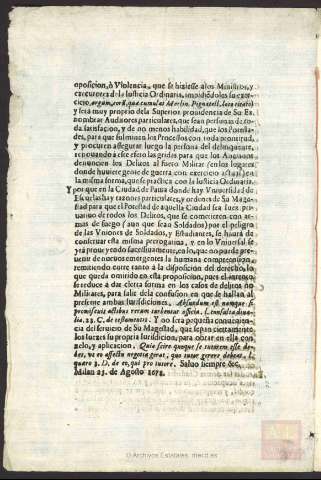 oposicion, ò Violencia, que se hiziesse a los Ministros, y
executores de la Iusticia Ordinaria, impidiēdoles su exer-
cicio,
y serà muy proprio de la Superior prouidencia de Su Ex.
nombrar Auditores particulares, que sean personas de to-
da satisfacion, y de no menos habilidad, que los Potesta-
des, para que fulminen los Processos con toda promtitud,
y procuren assegurar luego la persona del delinquente,
renouando à este efecto las gridas para que los Ancianos
denuncien los Delicos al Fuero Militar (en los lugares
donde huuiere gente de guerra con exercicio actual) en
la misma forma, que se practica con la Iusticia Ordinaria.
Y porque en la Ciudad de Pauia donde hay Vniuersidad de
Escuelas hay razones particulares, y ordenes de Su Mage-
stad para que el Potestad de aquella Ciudad sea Iuez pri-
uatiuo de todos los Delitos, que se cometieren con ar-
mas de fuego (aun que sean Soldados) por el peligro
de las Vniones de Soldados, y Estudiantes, se haurà de
conseruar esta misma prerrogatiua, y en lo Vniuersal se
yrà proueyendo successiuamente, en lo, que no puede pre-
uenir de nueuos emergentes la humana comprehension,
remitiendo entre tanto à la disposicion del derecho, lo
que queda omitido en esta proposicion, pues el intento
se reduce à dar cierta forma en los casos de delitos no
Militares, para salir de la confusion en que se hallan al
presente ambas Iurisdiciones. Absurdum est namque si
promiscuis actibus rerum turbentur officia. l. consulta diua-
lia. 23. C. de testamentis. Y no serà pequeña conuenien-
cia del seruicio de Su Magestad, que sepan ciertamente
los Iuezes su propria Iurisdicion, para obrar en ella con
zelo, y aplicacion. Quia scire quoque se tutorem esse de-
bet, vt eo affectu negotia gerat, quo tutor gerere deberet. l.
quæro 3. D. de eo, qui pro tutore. Saluo siempre &c.
Milan 23. de Agosto 1672.
© Archivos Estatales, mecd.es